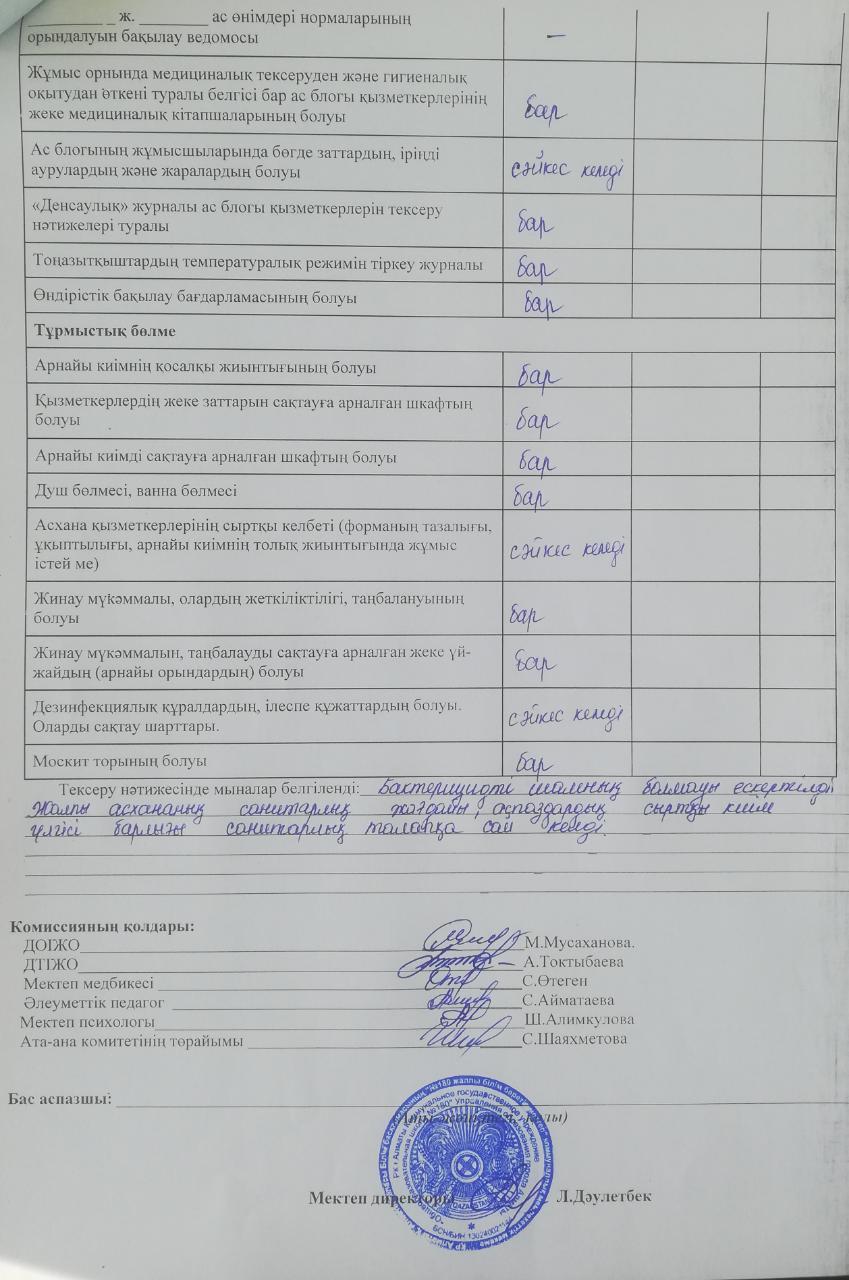 _________ _ ж. ________ ас өнімдері нормаларының
орындалуын бақылау ведомосы –
Жұмыс орнында медициналық тексеруден және гигиеналық
оқытудан өткені туралы белгісі бар ас блогы қызметкерлерінің
жеке медициналық кітапшаларының болуы бар
Ас блогының жұмысшыларында бөгде заттардың, іріңді
аурулардың және жаралардың болуы сәйкес келеді
«Денсаулық» журналы ас блогы қызметкерлерін тексеру
нәтижелері туралы бар
Тоңазытқыштардың температуралық режимін тіркеу журналы бар
Өндірістік бақылау бағдарламасының болуы бар
Тұрмыстық бөлме
Арнайы киімнің қосалқы жиынтығының болуы бар
Қызметкерлердің жеке заттарын сақтауға арналған шкафтың
болуы бар
Арнайы киімді сақтауға арналған шкафтың болуы бар
Душ бөлмесі, ванна бөлмесі бар
Асхана қызметкерлерінің сыртқы келбеті (форманың тазалығы,
ұқыптылығы, арнайы киімнің толық жиынтығында жұмыс
істей ме) сәйкес келеді
Жинау мүкәммалы, олардың жеткіліктілігі, таңбалануының
болуы бар
Жинау мүкәммалын, таңбалауды сақтауға арналған жеке үй-
жайдың (арнайы орындардың) болуы бар
Дезинфекциялық құралдардың, ілеспе құжаттардың болуы.
Оларды сақтау шарттары. сәйкес келеді
Москит торының болуы бар
Тексеру нәтижесінде мыналар белгіленді: Бактерицидті шамның болмауы ескертілді
Жалпы асхананың санитарлық жағдайы, аспаздардың сыртқы киім
үлгісі барлығы санитарлық талапқа сай келеді.
Комиссияның қолдары:
ДОІЖО М.Мусаханова.
ДТІЖО А.Токтыбаева
Мектеп медбикесі С.Өтеген
Әлеуметтік педагог С.Айматаева
Мектеп психологы Ш.Алимкулова
Ата-ана комитетінің төрайымы С.Шаяхметова
Бас аспазшы:
Мектеп директоры Л.Дәулетбек